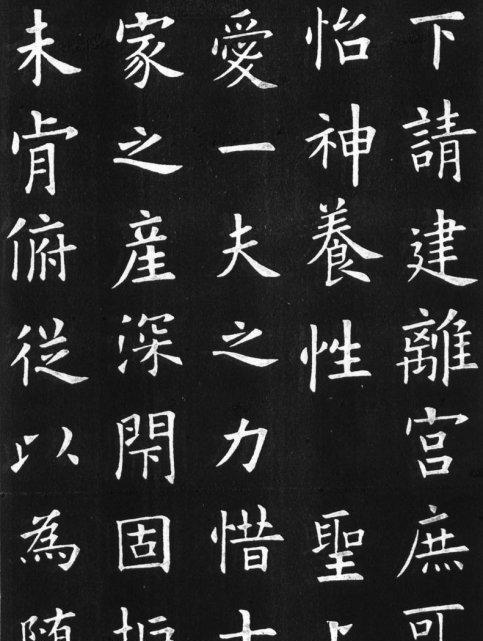 下請建離宮庶可
怡神養性 聖上
愛一夫之力惜十
家之産深閇固拒
未肯俯從以為随